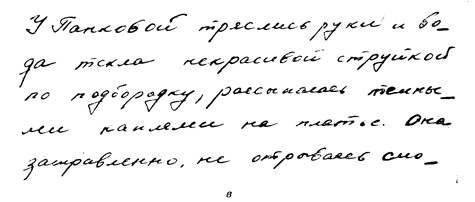 У Панковой тряслись руки и во-
да текла некрасивой струйкой
по подбородку, рассыпаясь темны-
ми каплями на платье. Она
затравленно, не отрываясь смо-
в